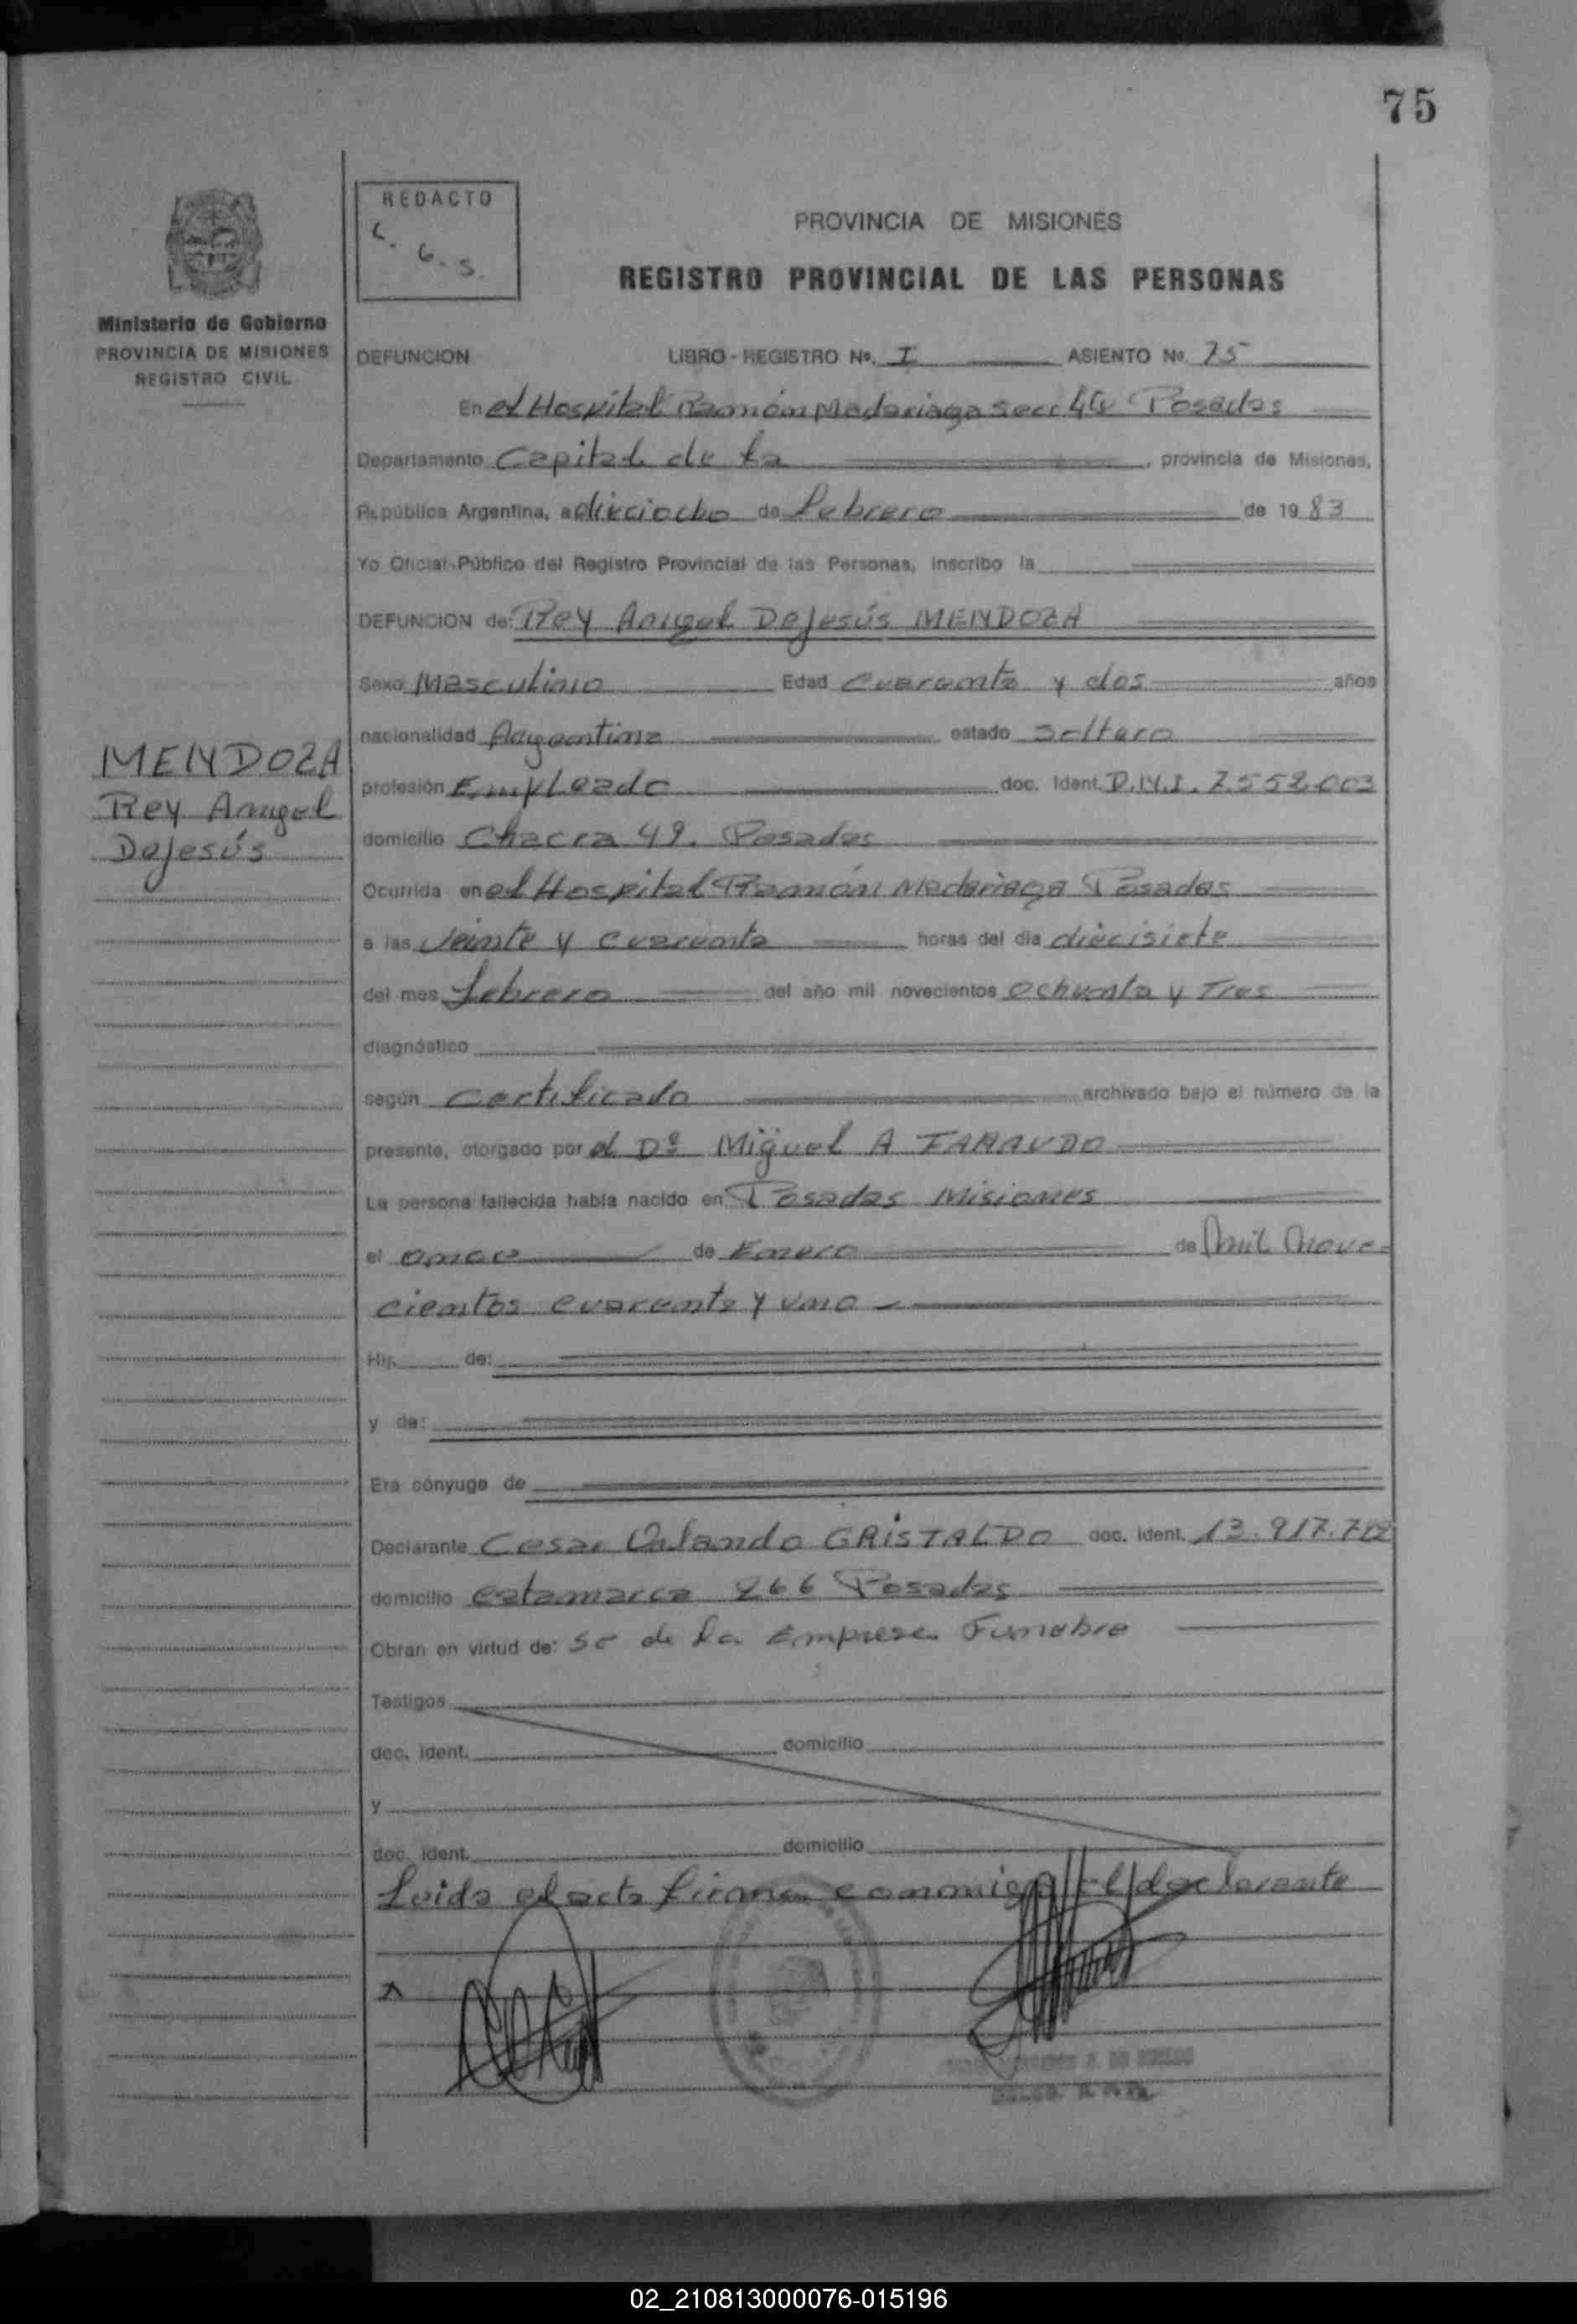 75
REDACTO
L. G. S.
PROVINCIA DE MISIONES
REGISTRO PROVINCIAL DE LAS PERSONAS
Ministerio de Gobierno
PROVINCIA DE MISIONES
REGISTRO CIVIL
DEFUNCION LIBRO - REGISTRO Nº. I ASIENTO Nº. 75
En el Hospital Ramón Madariaga Secc 4ta Posadas
Departamento Capital de la , provincia de Misiones,
República Argentina, a dieciocho de Febrero de 1983
Yo Oficial Público del Registro Provincial de las Personas, inscribo la
DEFUNCION de: Rey Angel DeJesús MENDOZA
Sexo Masculino Edad Cuarenta y dos años
nacionalidad Argentina estado Soltero
profesión Empleado doc. ident. D.N.I. 7.552.003
domicilio Chacra 49. Posadas
Ocurrida en el Hospital Ramón Madariaga Posadas
a las Veinte y Cuarenta horas del día diecisiete
del mes Febrero del año mil novecientos Ochenta y Tres
diagnóstico
según Certificado archivado bajo el número de la
presente, otorgado por el Dº Miguel A
La persona fallecida había nacido en Posadas Misiones
el Once de Enero de Mil Nove-
cientos cuarenta y uno
Hij de:
y de:
Era cónyuge de
Declarante Cesar Orlando GRISTALDO doc. ident. 13.917.7
domicilio Catamarca 266 Posadas
Obran en virtud de: Se de la Empresa Funebre
Testigos
doc. ident. domicilio
y
doc. ident. domicilio
Leida el acta firman conmigo el declarante
MENDOZA
Rey Angel
DeJesús
02_210813000076-015196